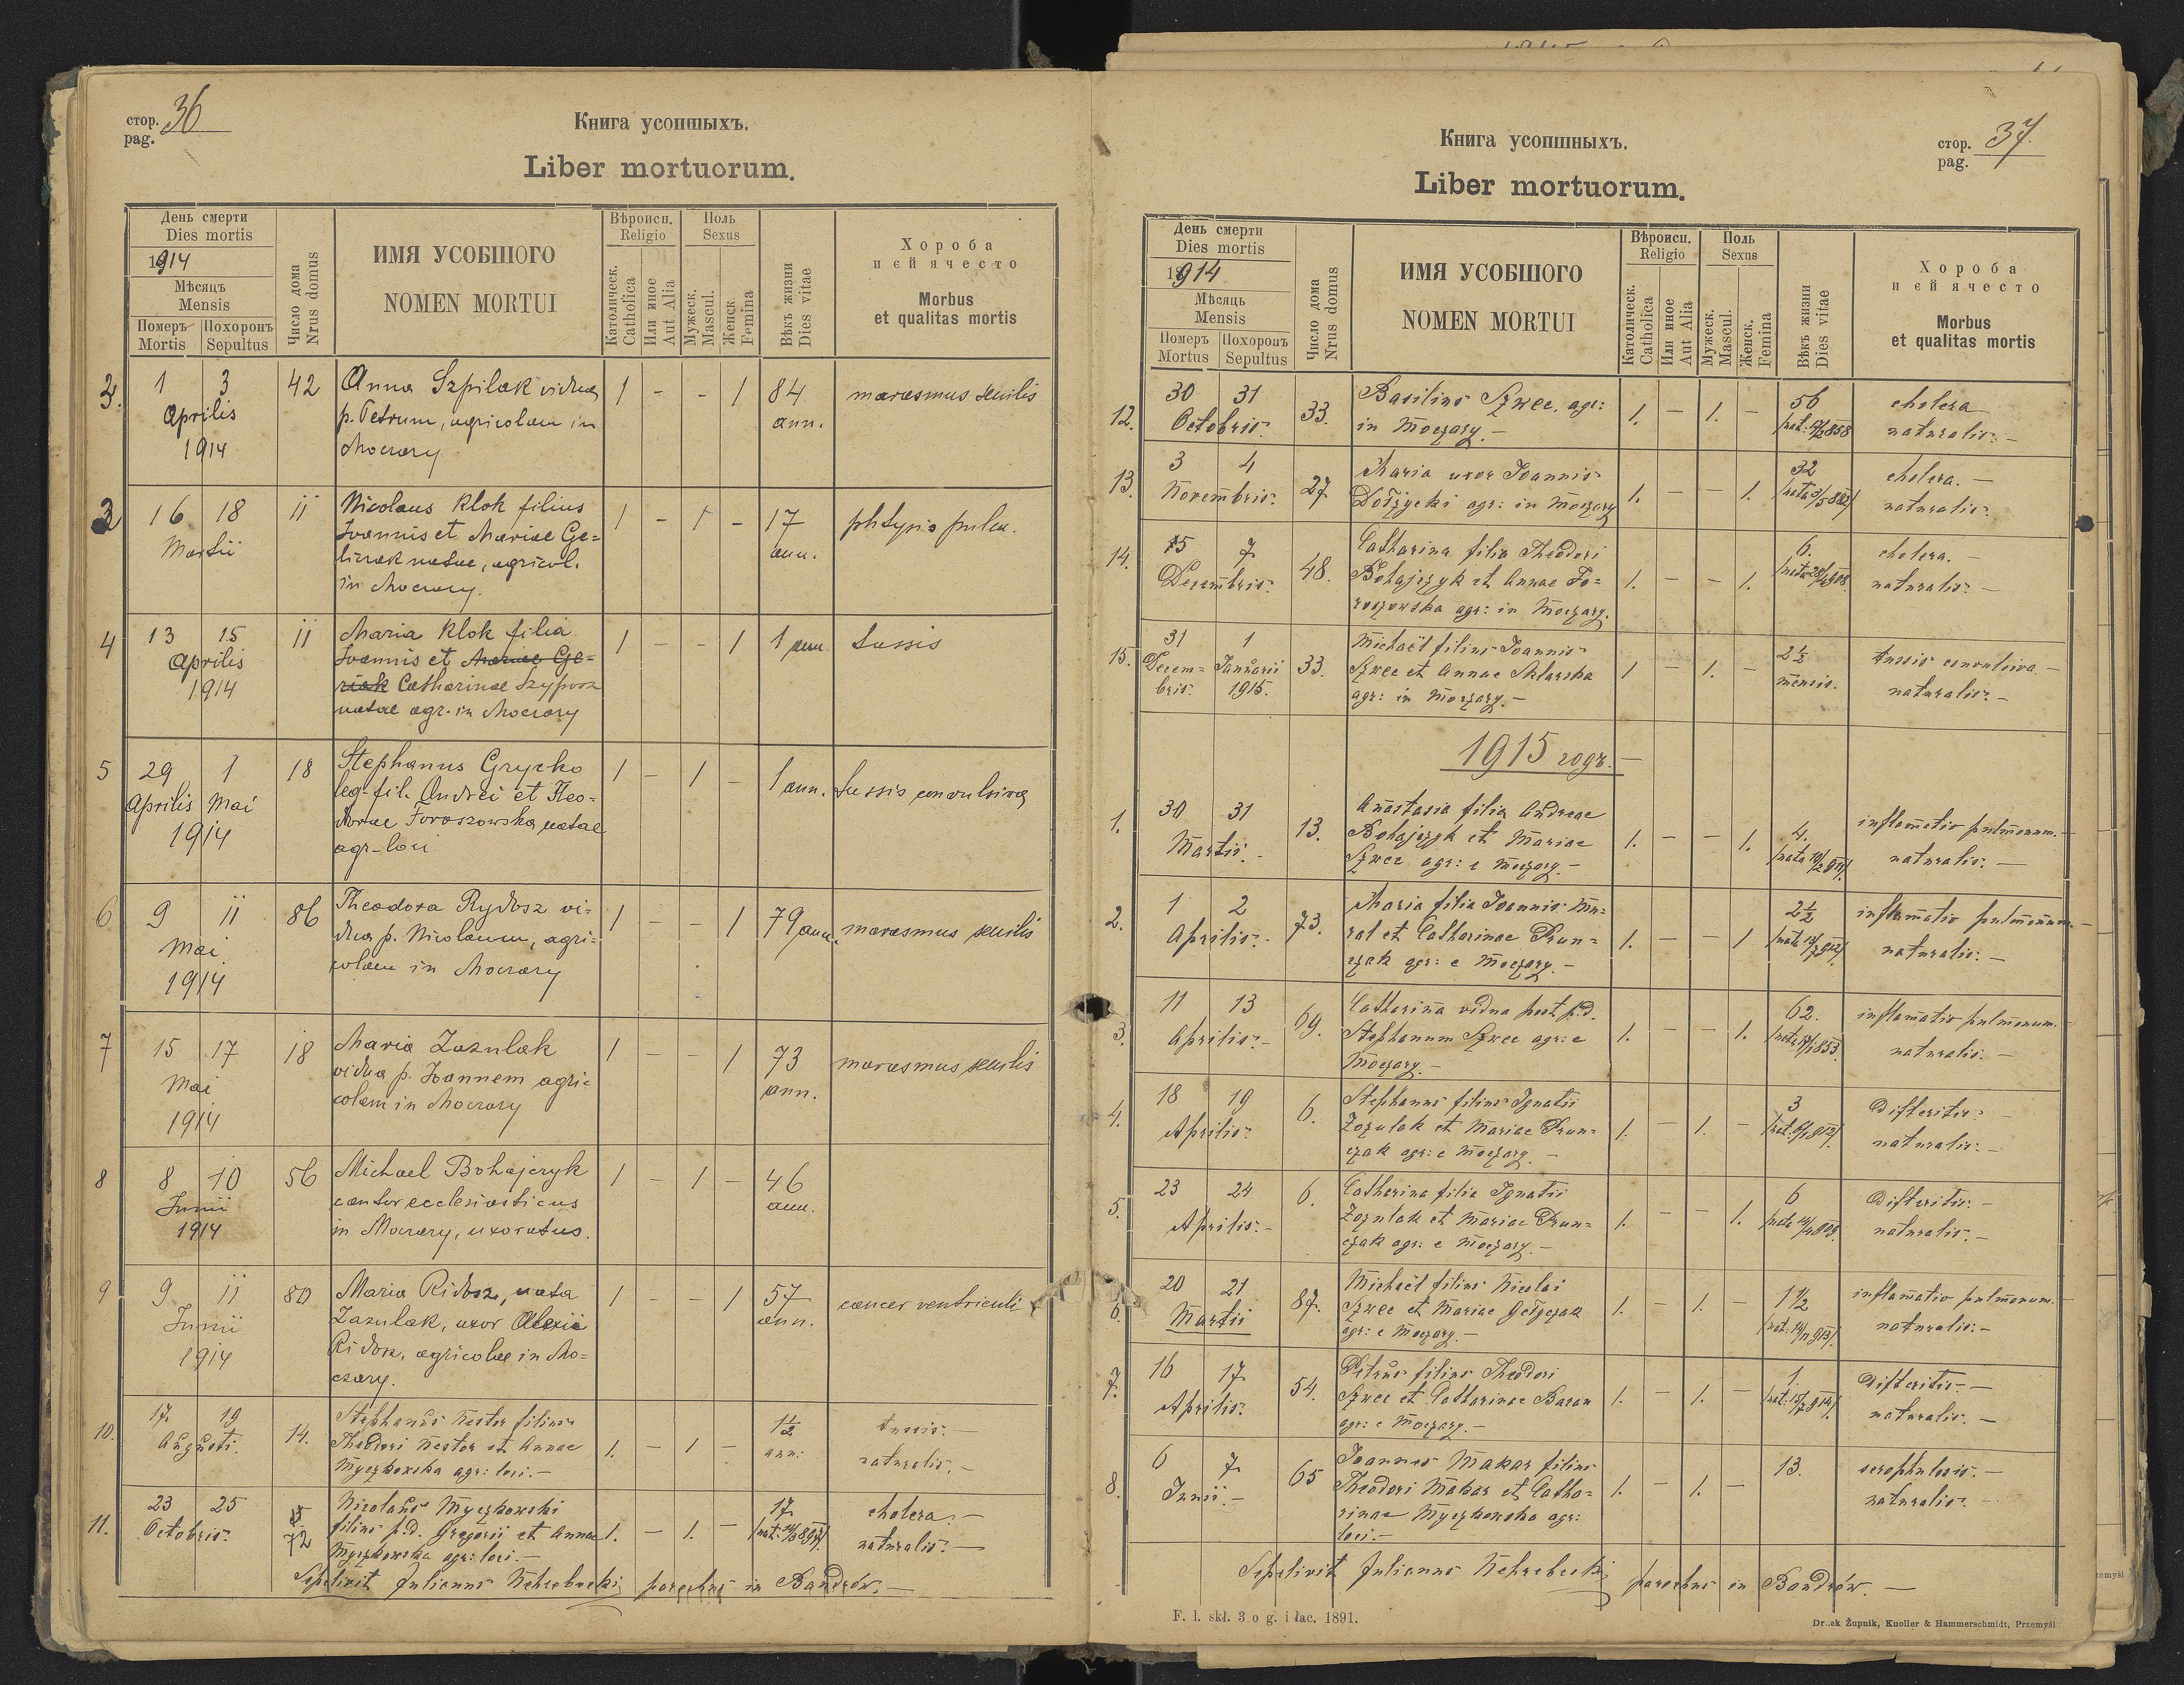 стор. 36
pag.
Книга усопшыхъ.
Liber mortuorum.
День смерти
Dies mortis
1914
Мѣсяцъ
Mensis
Померъ Похоронъ
Mortis Sepultus
Число дома
Nrus domus
ИМЯ УСОБШОГО
NOMEN MORTUI
Вѣроисп.
Religio
Католическ.
Catholica
Или иное
Aut Alia
Поль
Sexus
Мужеск.
Mascul.
Женск.
Femina
Вѣкъ жизни
Dies vitae
Хороба
и єй ячесто
Morbus
et qualitas mortis
1 3 42 Anna Szpilak vidua 1 - - 1 84 marasmus senilis
Aprilis p. Petrum, agricolam in ann.
1914 Moczary
16 18 11 Nicolaus Klok filius 1 - 1 - 17 phtysis pulm.
Martii Ioannis et Mariae Ge= ann.
natae, agricol.
in Moczary.
4 13 15 11 Maria Klok filia 1 - - 1 1 ann. tussis
Aprilis Ioannis et Mariae Ge=
1914 Catharinae
natae agr. in Moczary
5 29 1 18 Stephanus Grycko 1 - 1 - 1 ann. tussis convulsiva
Aprilis Mai leg. fil. Andrei et Theo-
1914 dorae Foroszowska natae
agr. loci
6 9 11 86 Theodora Rydosz vi= 1 - - 1 79 ann. marasmus senilis
Mai dua p. Nicolaum, agri=
1914 colam in Moczary
7 15 17 18 Maria Zazulak 1 - - 1 73 marasmus senilis
Mai vidua p. Ioannem agri= ann.
1914 colam in Moczary
8 8 10 56 Michael Bohajczyk 1 - 1 - 46
Junii cantor ecclesiasticus ann.
1914 in Moczary, uxoratus.
9 9 11 80 Maria Ridosz, nata 1 - - 1 57 cancer ventriculi
Junii Zazulak, uxor Alexii ann.
1914 agricolae in Mo=
czary.
10. 17 19 14. Stephanus Nestor filius 1. - 1 - 1½ tussis. -
Augusti. Theodori Nestor et Annae ann. naturalis. -
Myczkowska agr: loci. -
11. 23 25 72 Nicolaus Myczkowski 1. - 1. - 17. cholera. -
Octobris. filius p.d. Gregorii et Annae naturalis. -
Myczkowska agr: loci. -
Sepelivit Julianus Nehrebecki parochus in Bandrów. -
Книга усопшныхъ.
стор. 37.
pag.
Liber mortuorum.
День смерти
Dies mortis
1914
Мѣсяць
Mensis
Померъ Похоронъ
Mortus Sepultus
Число дома
Nrus domus
ИМЯ УСОБШОГО
NOMEN MORTUI
Вѣроисп.
Religio
Католическ.
Catholica
Или иное
Aut Alia
Поль
Sexus
Мужеск.
Mascul.
Женск.
Femina
Вѣкъ жизни
Dies vitae
Хороба
и єй ячесто
Morbus
et qualitas mortis
12. 30 31 33. Basilius Szwec. agr: 1. - 1. - 56 cholera
Octobris. in Moczary. - naturalis. -
13. 3 4 27 Maria uxor Ioannis 1. - - 1. 32 cholera. -
Novembris. Dołżycki agr: in Moczary naturalis.
14. 5 7 48. Catharina filia Theodori 1. - - 1. 6. cholera. -
Decembris. Bohajczyk et Annae Fo= naturalis. -
roszowska agr: in Moczary.
15. 31 1 33. Michaël filius Ioannis 1 - 1. - 2½ tussis convulsiva -
Decem= Januarii Szwec et Annae Sklarska mensis. naturalis. -
bris. 1915. agr: in Moczary. -
1915 годъ. -
1. 30 31 13. Anastasia filia Andreae 1. - - 1. 4. inflamatio pulmonum. -
Martii. - Bohajczyk et Mariae naturalis. -
Szwec agr: e Moczary. -
2. 1 2 73. Maria filia Ioannis Mu= 1. - - 1 2½ inflamatio pulmonum. -
Aprilis. - ral et Catharinae Prun= naturalis. -
czak agr: e Moczary. -
3. 11 13 69. Catharina vidua post p.d. 1. - - 1. 62. inflamatio pulmonum.
Aprilis. - Stephanum Szwec agr: e naturalis. -
Moczary. -
4. 18 19 6. Stephanus filius Ignatii 1. - 1. - 3 Difteritis. -
Aprilis. Zozulak et Mariae Prun= naturalis. -
czak agr: e Moczary. -
5. 23 24 6. Catharina filia Ignatii 1. - - 1. 6 Difteritis. -
Aprilis. - Zozulak et Mariae Prun= naturalis. -
czak agr: e Moczary. -
6. 20 21 87. Michaël filius Nicolai 1. - 1. - 1½ inflamatio pulmonum. -
Martii Szwec et Mariae naturalis. -
agr: e Moczary. -
7. 16 17 54. Petrus filius Theodori 1. - 1. - 1. Difteritis. -
Aprilis. Szwec et Catharinae Baran naturalis. -
agr: e Moczary. -
8. 6 7 65 Ioannes Makar filius 1. - 1. - 13. scrophulosis. -
Junii. - Theodori Makar et Catha= naturalis. -
rinae Myczkowska agr:
loci. -
Sepelivit Julianus Nehrebecki parochus in Bandrów. -
F. l. skł. 3 o g. i łac. 1891.
Żupnik, Knoller & Hammerschmidt, Przemyśl